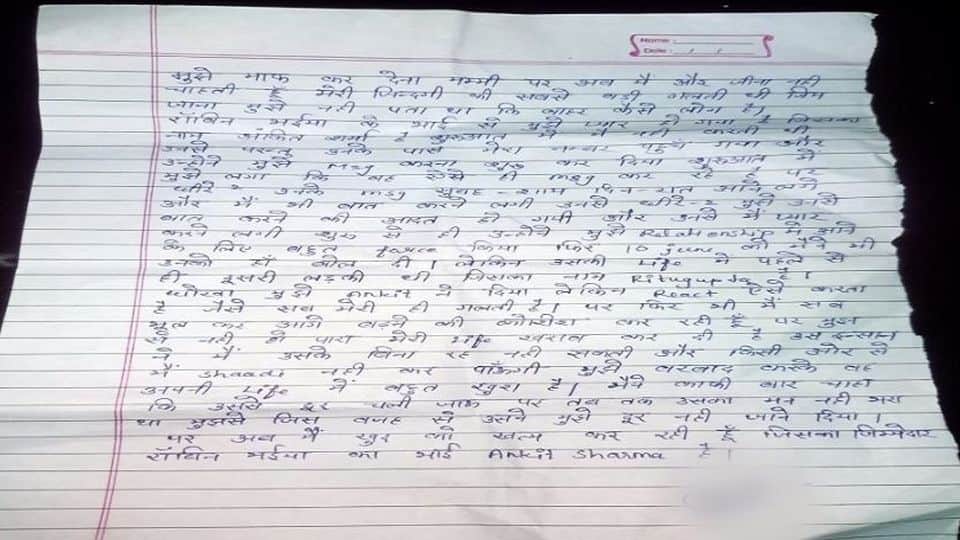 Name :
Date : / /
मुझे माफ कर देना मम्मी पर अब मैं और जीना नही
चाहती हूँ मेरी जिन्दगी की सबसे बडी गलती थी जिम
जाना मुझे नही पता था कि बाहर कैसे लोग है।
रॉबिन भईया के भाई से मुझे प्यार हो गया है जिसका
नाम अंकित शर्मा है शुरुआत में मैं नही करती थी
उनसे परन्तु उनके पास मेरा नम्बर पहुँच गया और
उन्होने मुझे msg करना शुरु कर दिया शुरुआत में
मुझे लगा कि वह ऐसे ही msg कर रहे है पर
धीरे २ उनके msg सुबह-शाम दिन-रात आने लगे
और मैं भी बात करने लगी उनसे धीरे-२ मुझे उनसे
बात करने की आदत हो गयी और उनसे मैं प्यार
करने लगी शुरु से ही उन्होने मुझे Relationship में आने
के लिए बहुत force किया फिर 10 june को मैंने भी
उनको हाँ बोल दी। लेकिन उसकी Life में पहले से
ही दूसरी लड़की थी जिसका नाम Ritugupta है।
धोखा मुझे Ankit ने दिया लेकिन React ऐसे करता
है जैसे सब मेरी ही गलती है। पर फिर भी मैं सब
भूल कर आगे बढ़ने की कोशिश कर रही हूँ पर मुझ
से नही हो पारा मेरी Life खराब कर दी है उस इन्सान
ने मैं उसके बिना रह नही सकती और किसी और से
मैं shaadi नही कर पाँऊगी मुझे बरबाद करके वह
अपनी Life में बहुत खुश है। मैंने काफी बार चाहा
कि उससे दूर चली जाऊ पर तब तक उसका मन नही भरा
था मुझसे जिस वजह से उसने मुझे दूर नही जाने दिया।
पर अब मैं खुद को खत्म कर रही हूँ जिसका जिम्मेदार
रॉबिन भईया का भाई Ankit Sharma है।